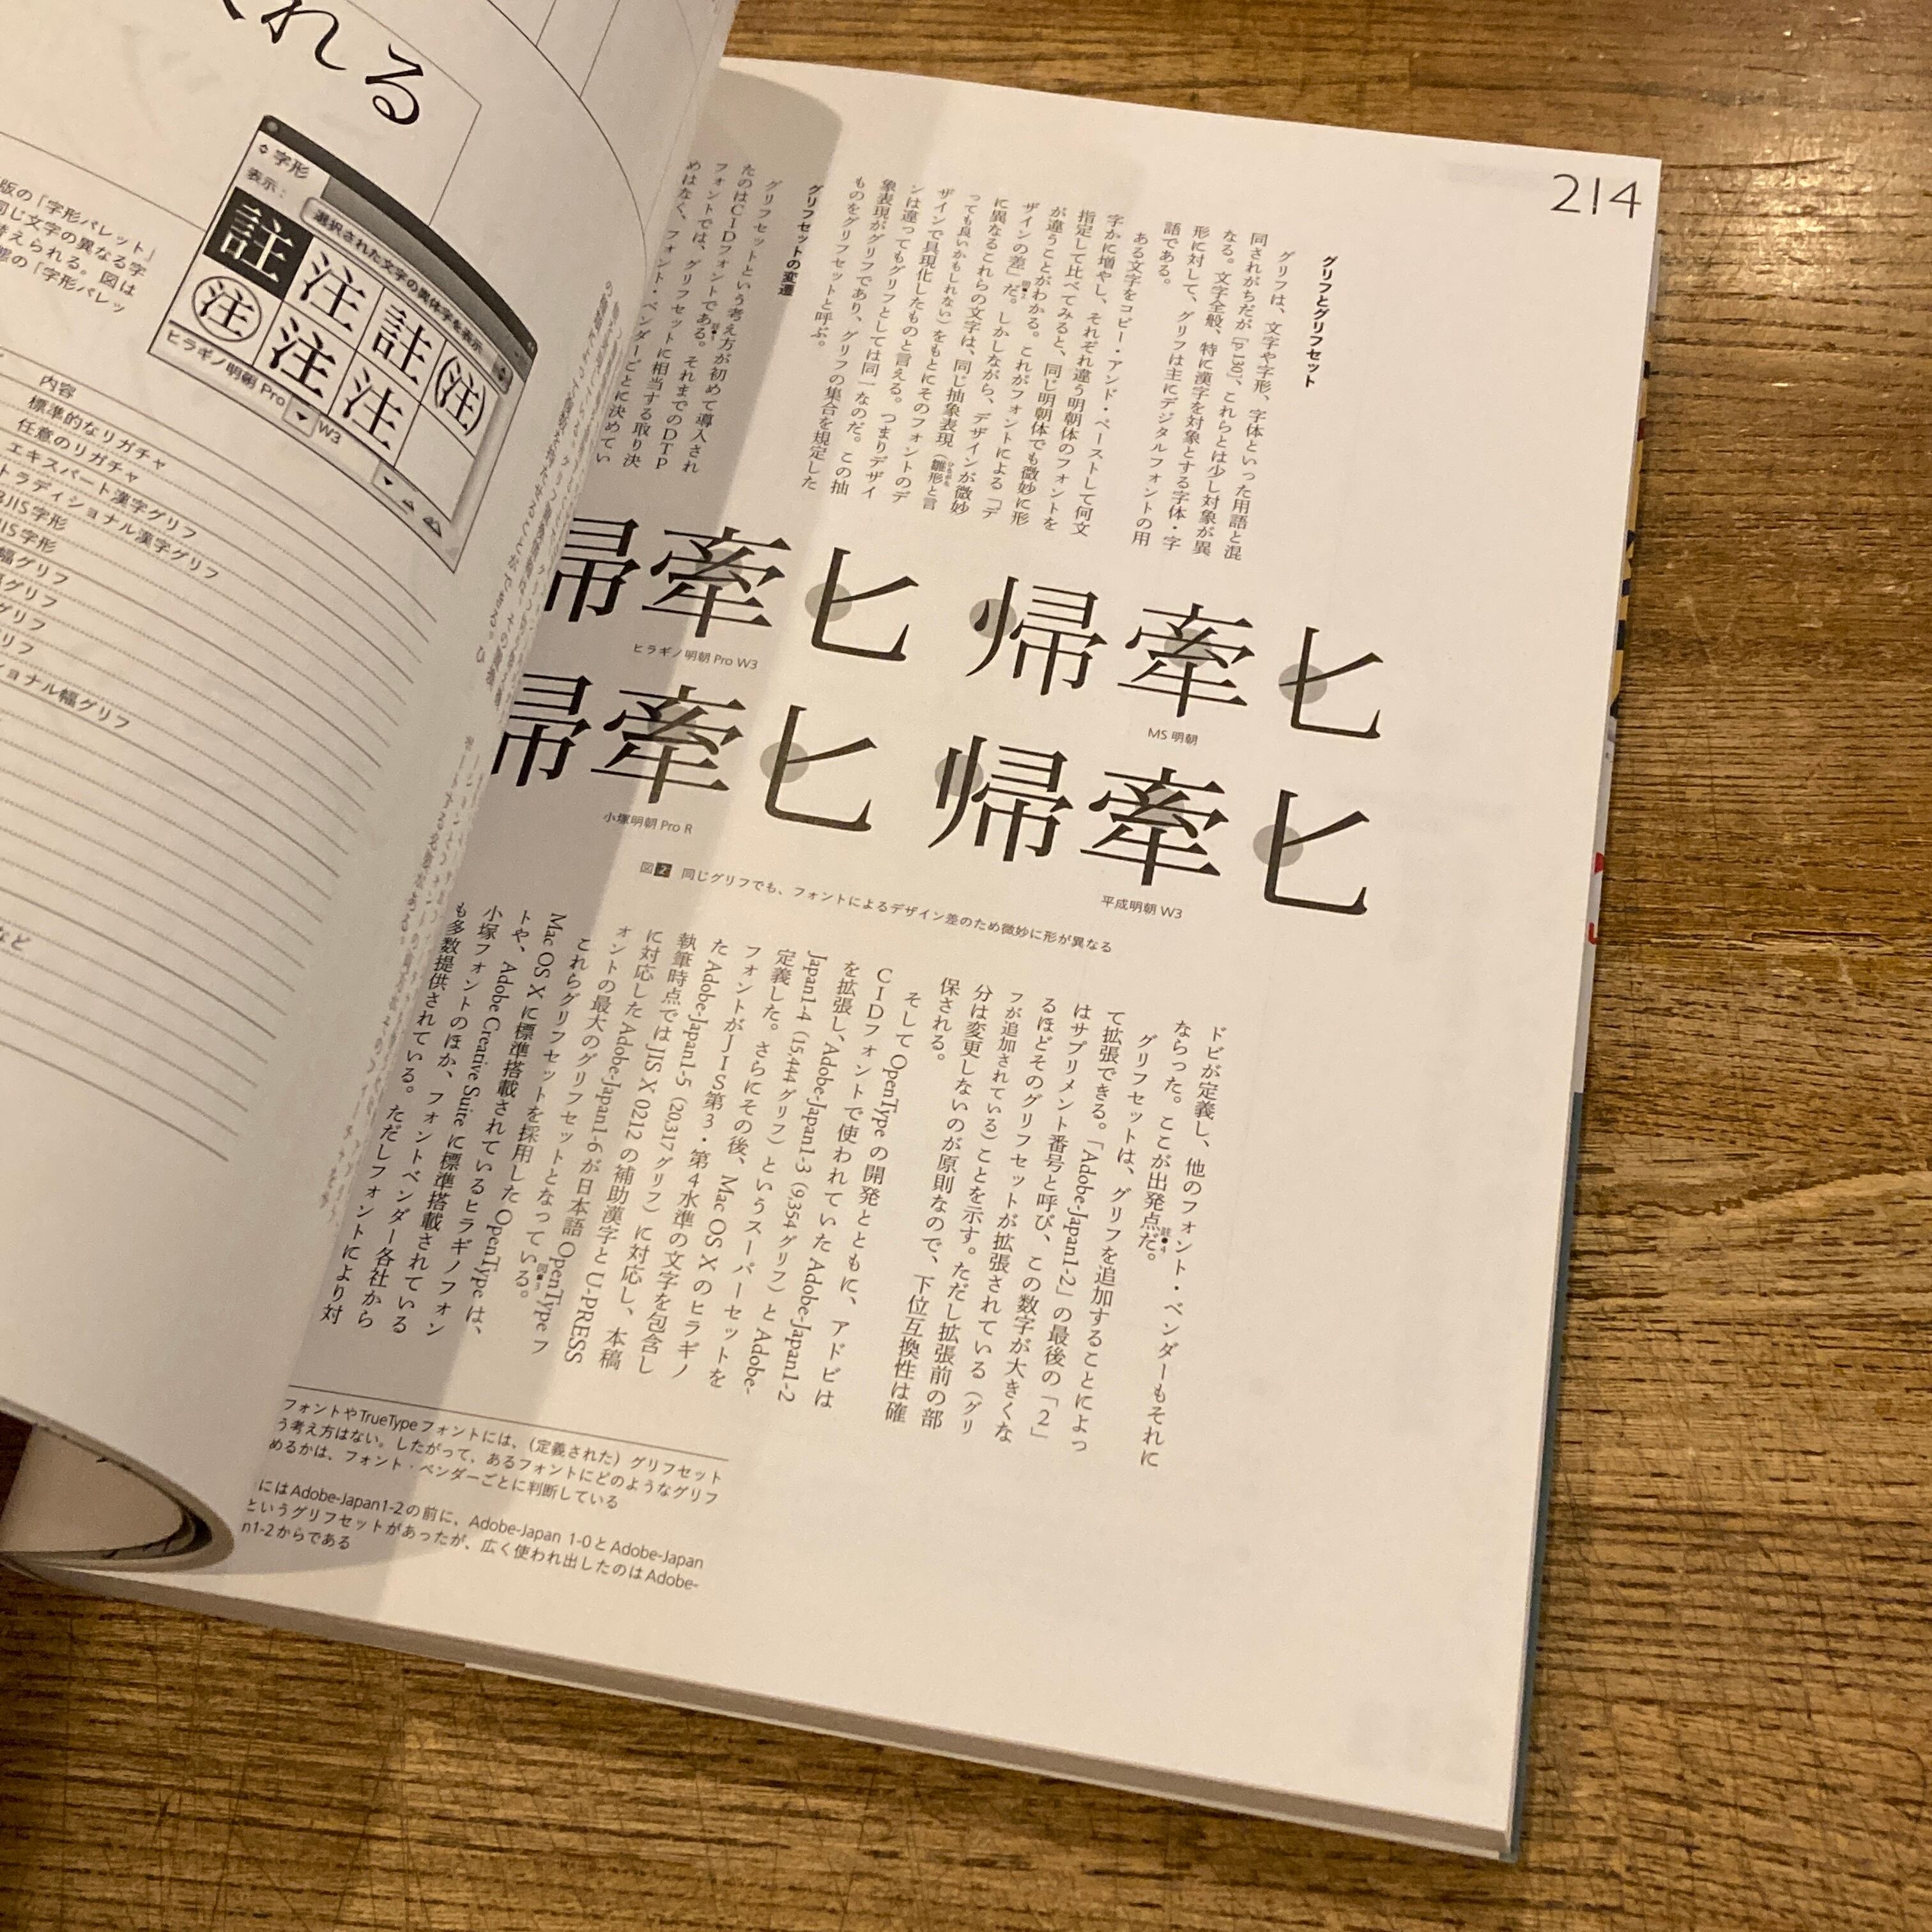 214
グリフとグリフセット
グリフは、文字や字形、字体といった用語と混
同されがちだが［p.130］、これらとは少し対象が異
なる。文字全般、特に漢字を対象とする字体・字
形に対して、グリフは主にデジタルフォントの用
語である。
ある文字をコピー・アンド・ペーストして何文
字かに増やし、それぞれ違う明朝体のフォントを
指定して比べてみると、同じ明朝体でも微妙に形
が違うことがわかる。これがフォントによる「デ
ザインの差」だ。しかしながら、デザインが微妙
に異なるこれらの文字は、同じ抽象表現（雛形と言
っても良いかもしれない）をもとにそのフォントのデ
ザインで具現化したものと言える。つまりデザイ
ンは違ってもグリフとしては同一なのだ。この抽
象表現がグリフであり、グリフの集合を規定した
ものをグリフセットと呼ぶ。
グリフセットの変遷
グリフセットという考え方が初めて導入され
たのはCIDフォントである。それまでのDTP
フォントでは、グリフセットに相当する取り決
めはなく、フォント・ベンダーごとに決めてい
帰牽匕
MS 明朝
帰牽匕
ヒラギノ明朝 Pro W3
帰牽匕
平成明朝 W3
帰牽匕
小塚明朝 Pro R
図2 同じグリフでも、フォントによるデザイン差のため微妙に形が異なる
ドビが定義し、他のフォント・ベンダーもそれに
ならった。ここが出発点だ。
グリフセットは、グリフを追加することによっ
て拡張できる。「Adobe-Japan1-2」の最後の「2」
はサプリメント番号と呼び、この数字が大きくな
るほどそのグリフセットが拡張されている（グリ
フが追加されている）ことを示す。ただし拡張前の部
分は変更しないのが原則なので、下位互換性は確
保される。
そして OpenType の開発とともに、アドビは
CIDフォントで使われていた Adobe-Japan1-2
を拡張し、Adobe-Japan1-3（9,354グリフ）と Adobe-
Japan1-4（15,444グリフ）というスーパーセットを
定義した。さらにその後、Mac OS X のヒラギノ
フォントがJIS第3・第4水準の文字を包含し
た Adobe-Japan1-5（20,317グリフ）に対応し、本稿
執筆時点では JIS X 0212 の補助漢字と U-PRESS
に対応した Adobe-Japan1-6 が日本語 OpenType フ
ォントの最大のグリフセットとなっている。
これらグリフセットを採用した OpenType は、
Mac OS X に標準搭載されているヒラギノフォン
トや、Adobe Creative Suite に標準搭載されている
小塚フォントのほか、フォントベンダー各社から
も多数提供されている。ただしフォントにより対
フォントやTrueTypeフォントには、（定義された）グリフセット
う考え方はない。したがって、あるフォントにどのようなグリフ
めるかは、フォント・ベンダーごとに判断している
にはAdobe-Japan1-2の前に、Adobe-Japan 1-0とAdobe-Japan
というグリフセットがあったが、広く使われ出したのはAdobe-
n1-2からである
れる
版の「字形パレット」
同じ文字の異なる字
替えられる。図は
態の「字形パレッ
字形
表示：
選択された文字の異体字を表示
註 注 註 (注)
注 注 注
ヒラギノ明朝 Pro
W3
内容
標準的なリガチャ
任意のリガチャ
エキスパート漢字グリフ
トラディショナル漢字グリフ
JIS字形
IS字形
幅グリフ
グリフ
グリフ
リフ
ョナル幅グリフ
など